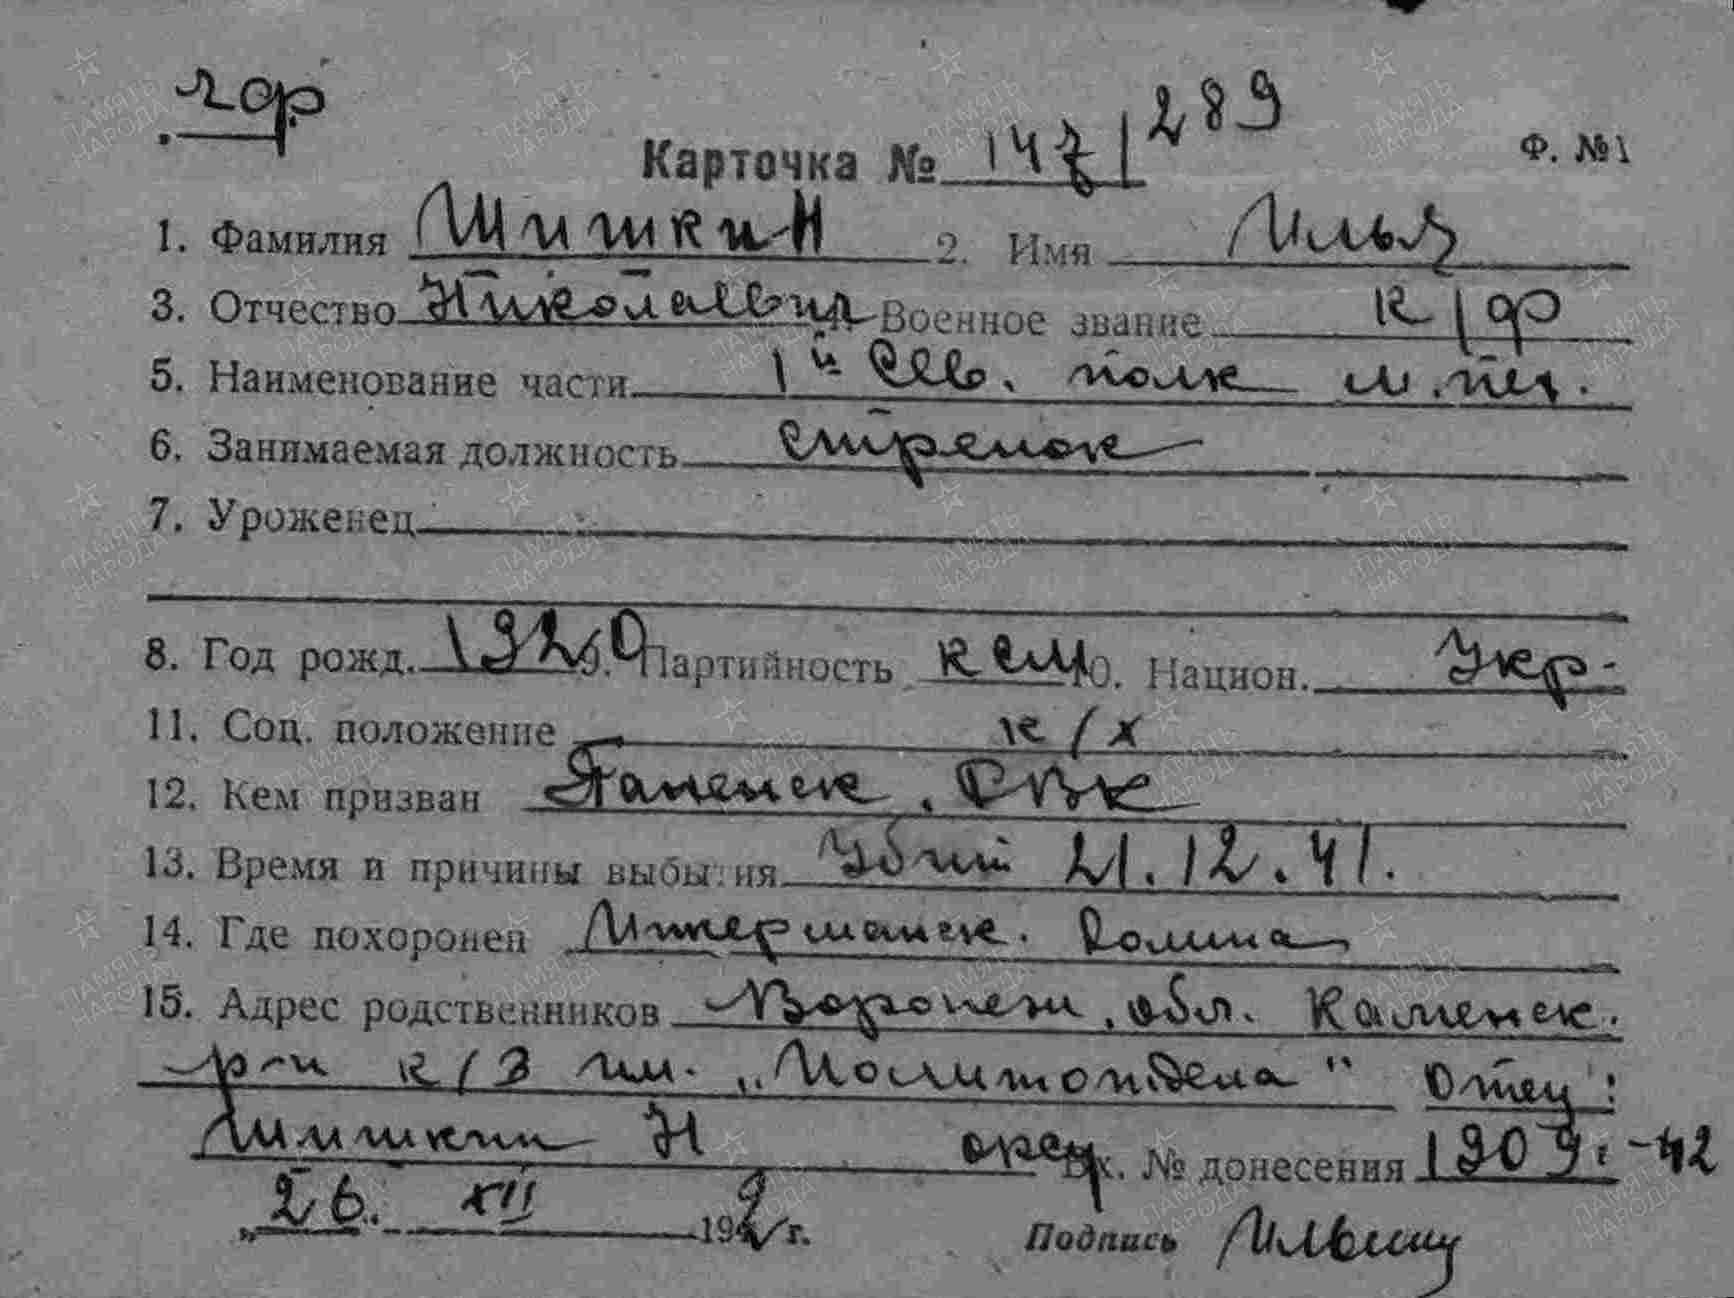 чф
Карточка № 147/289 Ф. №1
1. Фамилия Шишкин 2. Имя Илья
3. Отчество Николаевич Военное звание к/ф
5. Наименование части 1й Сев. полк м.пех.
6. Занимаемая должность стрелок
7. Уроженец
8. Год рожд. 1920 9. Партийность ксм 10. Национ. Укр.
11. Соц. положение к/х
12. Кем призван РВК
13. Время и причины выбытия Убит 21.12.41.
14. Где похоронен Инкерманск. Долина
15. Адрес родственников Воронеж. обл. Каменск.
р-н к/з им. „Политотдела" Отец:
Шишкин Н Вх. № донесения 1909с-42
„26. XII 1942 г. Подпись